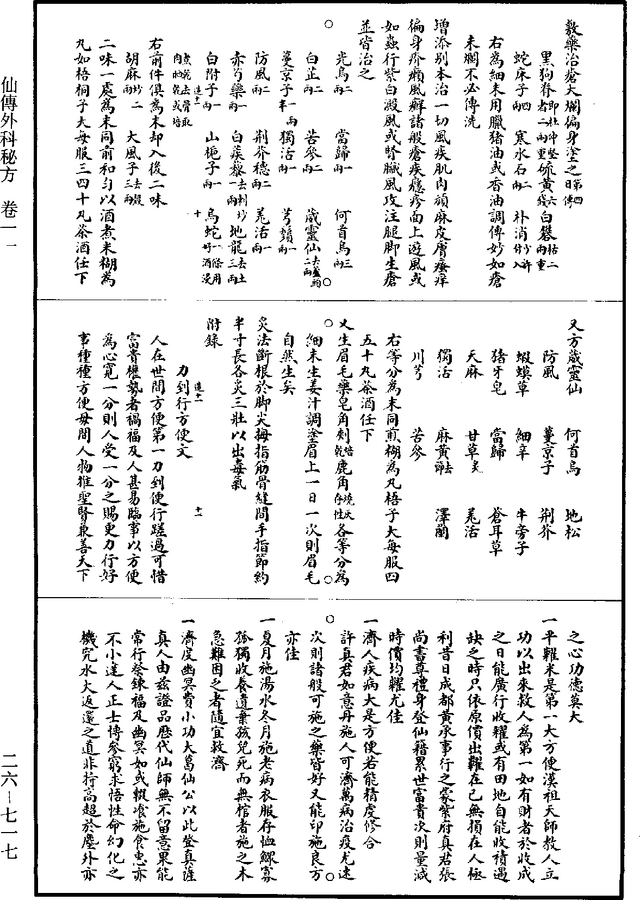 敷藥治瘡大爛偏身塗之日第四傳
黑狗脊者二兩即杜仲堅重硫黃六錢白礬枯二兩重
蛇床子四兩 寒水石二兩 朴消分少許入
右為細末用臘猪油或香油調傅妙如瘡
未爛不必傳洗
增添別本治一切風疾肌肉頑麻皮膚瘙痒
偏身疥癩風癬諸般瘡疾癮疹面上遊風或
如蟲行紫白癜風或腎臟風攻注腿脚生瘡
並皆治之
光烏二兩 當歸一兩 何首烏三兩
白芷二兩 苦參二兩 葳靈仙去蘆二兩
蔓京子半一兩 獨活一兩 芎藭一兩
防風二兩 荆芥穗二兩 羗活一兩
赤芍藥一兩 白蒺藜去刺一兩 地龍去土三兩
白附子一兩 山梔子一兩 烏蛇一條用好酒浸
煮脫去骨取肉焙乾為末
右前件俱為末却入後二味
胡麻炒二兩 大風子去殼三兩
二味一處為末同前和勻以酒煮米糊為
丸如梧桐子大每服三四十丸茶酒任下
又方葳靈仙 何首烏 地松
防風 蔓京子 荆芥
蝦蟆草 細辛 牛旁子
猪牙皂 當歸 蒼耳草
天麻 甘草炙 羗活
獨活 麻黃去節 澤蘭
川芎 苦參
右等分為末同煎糊為丸梧子大每服四
五十九茶酒任下
又生眉毛藥皂角刺焙乾鹿角燒灰存性各等分為
細末生姜汁調塗眉上一日一次則眉毛
自然生矣
灸法斷根於脚尖拇指筋骨縫間手指節約
半寸長各灸三壯以出毒氣
附錄
力到行方便文
人在世間方便第一力到便行蹉過可惜
富貴權勢者禍福及人甚易臨事以方便
為心寬一分則人受一分之賜更力行好
事種種方便毋間人物推聖賢兼善天下
之心功德莫大
一平糴米是第一大方便漢祖天師教人立
功以出米救人為第一如有財者於收成
之日能廣行收糴或有田地自能收積遇
缺之時只依原價出糶在已無損在人極
利昔日成都黃承事行之蒙紫府真君張
尚書尊禮身登仙籍累世富貴次則量減
時價均糶尤佳
一濟人疾病大是方便若能精虔修合
許真君如意丹施人可濟萬病治疫尤速
次則諸般可施之藥皆好又能印施良方
亦佳
一夏月施湯水冬月施老病衣服存恤鰥寡
孤獨收養遺棄孩兒死而無棺者施之木
急難困乏者隨宜救濟
一濟度幽冥費小功大葛仙公以此登真薩
真人由茲證品歷代仙師無不留意果能
常行祭鍊福及幽冥如或輟飡施食惠亦
不小達人正士博參窮求悟性命幻化之
機究水大返還之道非特高超於塵外亦
仙傳外科秘方 卷一一
二六-七一七